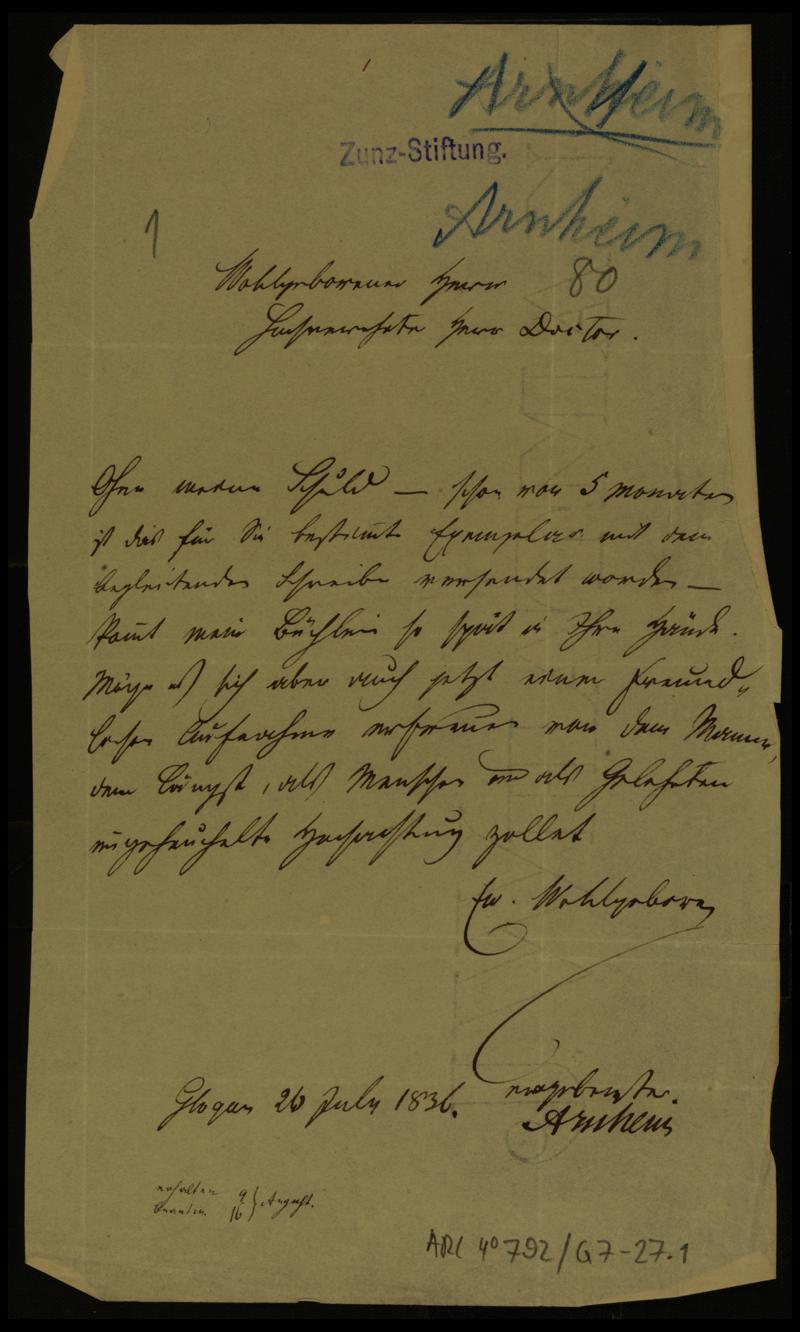 Arnheim
Zunz-Stiftung.
1
Arnheim
Wohlgeborener Herr 80
Hochverehrter Herr Doctor.
Ohne meine Schuld — schon vor 5 Monaten
ist das für Sie bestimmte Exemplar mit dem
begleitenden Schreiben versendet worden —
kommt mein Büchlein so spät in Ihre Hände.
Möge es sich aber auch jetzt einer freund„
lichen Aufnahme erfreuen von dem Manne,
dem längst, als Menschen und als Gelehrten
ungeheuchelte Hochachtung zollet
Ew. Wohlgeboren
ergebenster
Glogau 26 July 1836. Arnheim
erhalten 9 } August.
beantw. 16
ARC 4° 792/G7-27.1